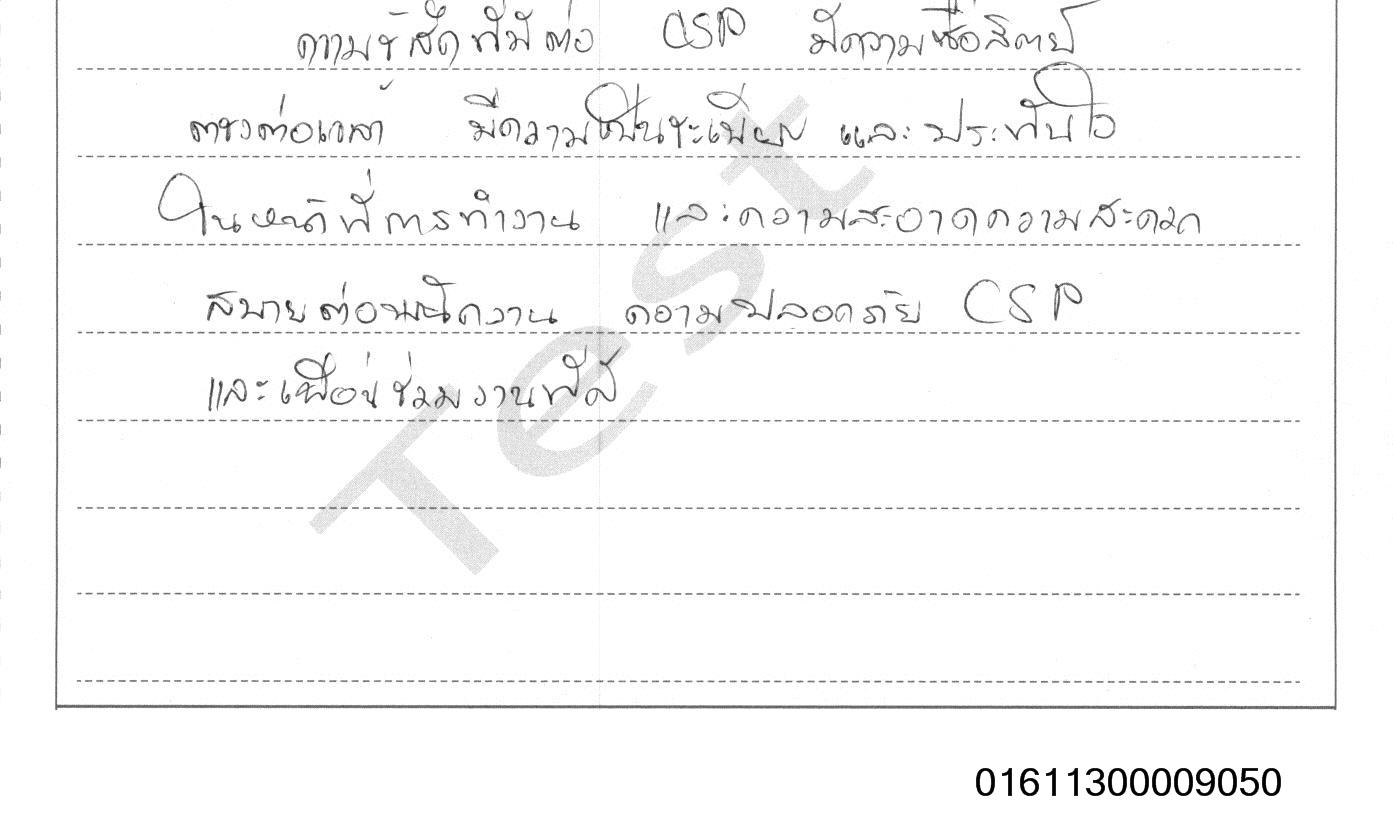 ความรู้สึกที่มีต่อ CSP มีความซื่อสัตย์
ตรงต่อเวลา มีความเป็นระเบียบ และประทับใจ
ในหน้าที่การทำงาน และความสะอาดความสะดวก
สบายต่อพนักงาน ความปลอดภัย CSP
และเพื่อนร่วมงานที่ดี
Test
01611300009050